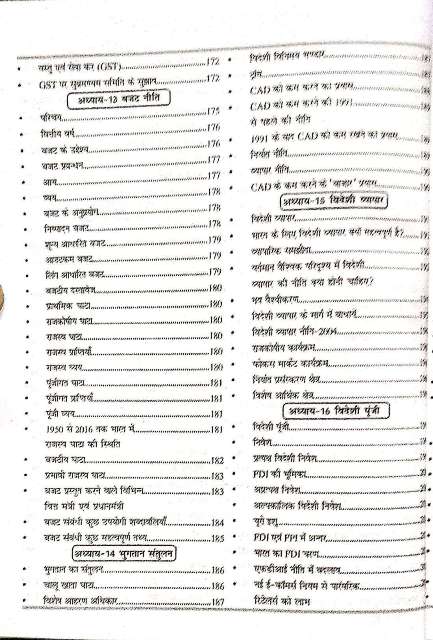 वस्तु एवं सेवा कर (GST)....................172
GST पर सुब्रमण्यम समिति के सुझाव....................172
अध्याय-13 बजट नीति
परिचय....................175
वित्तीय वर्ष....................176
बजट के उद्देश्य....................176
बजट प्रबन्धन....................177
आय....................177
व्यय....................178
बजट के अनुप्रयोग....................178
निष्पादन बजट....................178
शून्य आधारित बजट....................179
आउटकम बजट....................179
लिंग आधारित बजट....................179
बजटीय दस्तावेज....................180
प्राथमिक घाटा....................180
राजकोषीय घाटा....................180
राजस्व घाटा....................180
राजस्व प्राप्तियाँ....................180
राजस्व व्यय....................180
पूंजीगत घाटा....................181
पूंजीगत प्राप्तियाँ....................181
पूंजी व्यय....................181
1950 से 2016 तक भारत में....................181
राजस्व घाटा की स्थिति
बजटीय घाटा....................182
प्रभावी राजस्व घाटा....................183
बजट प्रस्तुत करने वाले विभिन्न....................183
वित्त मंत्री एवं प्रधानमंत्री
बजट संबंधी कुछ उपयोगी शब्दावलियाँ....................184
बजट संबंधी कुछ महत्वपूर्ण तथ्य....................185
अध्याय-14 भुगतान संतुलन
भुगतान का संतुलन....................186
चालू खाता घाटा....................186
विशेष आहरण अधिकार....................187
विदेशी विनिमय भण्डार
CAD को कम करने का प्रयास
CAD को कम करने की 1991
से पहले की नीति
1991 के बाद CAD को कम रखने का प्रयास
निर्यात नीति
व्यापार नीति
CAD के कम करने के 'बाजार' प्रयास
अध्याय-15 विदेशी व्यापार
विदेशी व्यापार
भारत के लिए विदेशी व्यापार क्यों महत्वपूर्ण है?
व्यापारिक समझौता
वर्तमान वैश्विक परिदृश्य में विदेशी
व्यापार की नीति क्या होनी चाहिए?
भूमंडलीकरण
विदेशी व्यापार के मार्ग में बाधायें
विदेशी व्यापार नीति-2004
राजकोषीय कार्यक्रम
फोकस मार्केट कार्यक्रम
निर्यात प्रसंस्करण क्षेत्र
विशेष आर्थिक क्षेत्र
अध्याय-16 विदेशी पूंजी
विदेशी पूंजी
निवेश
प्रत्यक्ष विदेशी निवेश
FDI की भूमिका
अप्रत्यक्ष निवेश
अल्पकालिक विदेशी निवेश
यूरो इशू
FDI एवं FPI में अन्तर
भारत का FDI
एफडीआई नीति में बदलाव
नई ई-कॉमर्स नियम से पारंपरिक
रिटेलर्स को लाभ